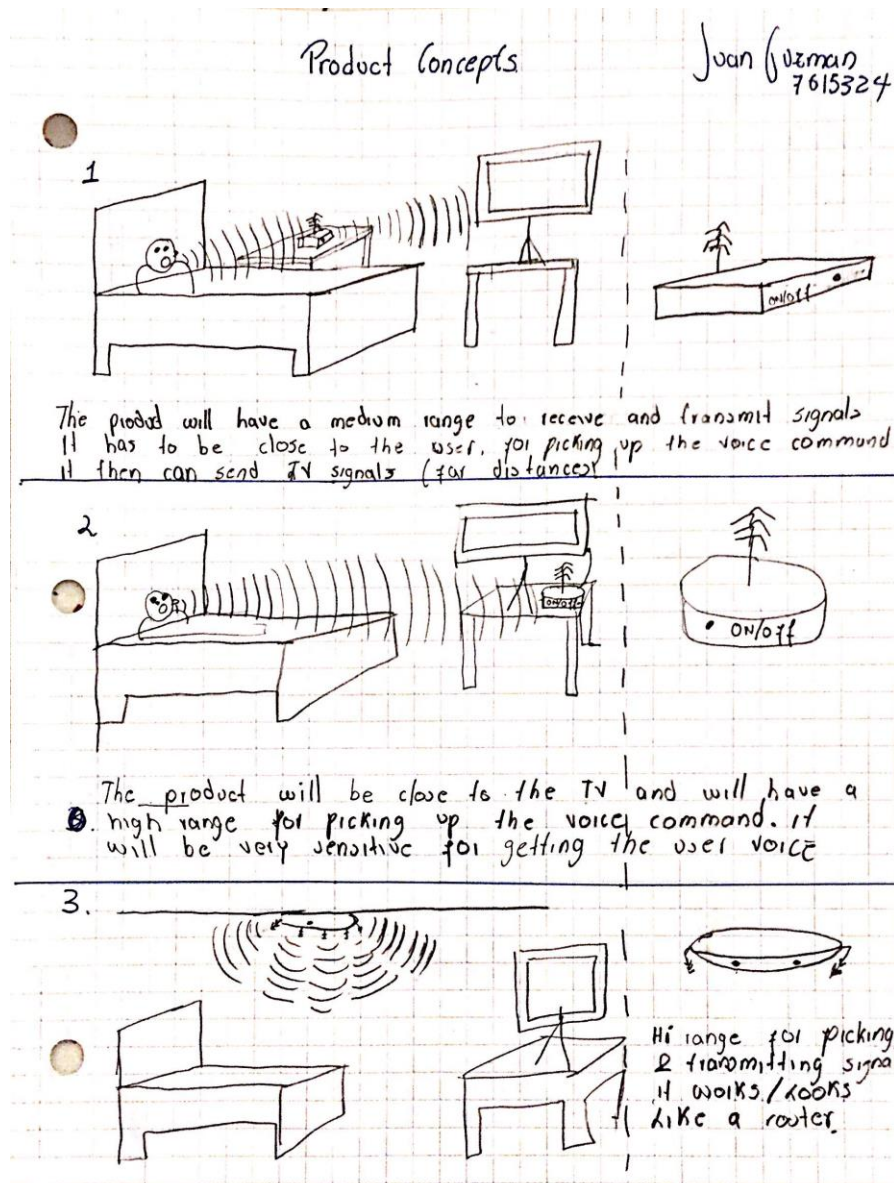 Product Concepts
Juan Guzman
7615324
1
ON/Off
The product will have a medium range to receive and transmit signals
It has to be close to the user, for picking up the voice command
it then can send TV signals (far distances)
2
ON/Off
ON/Off
The product will be close to the TV and will have a
high range for picking up the voice command. it
will be very sensitive for getting the user voice
3.
Hi range for picking
& transmitting signa
it works/Looks
Like a router.